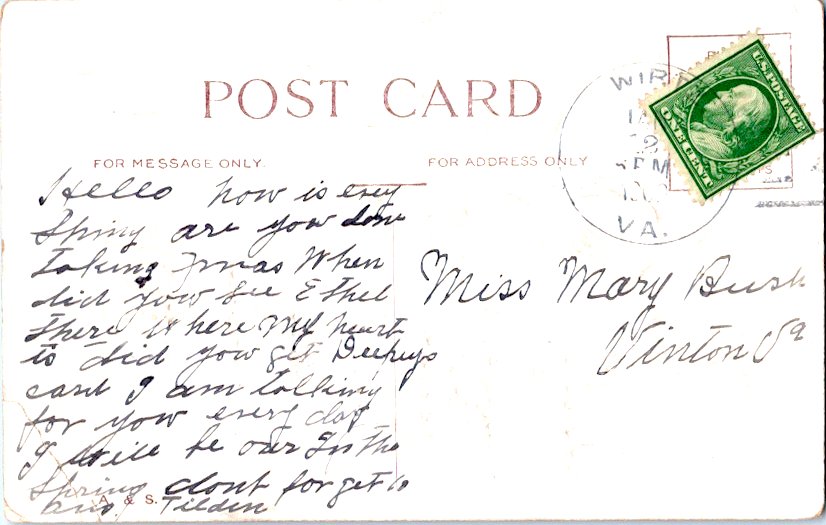 POST CARD
FOR MESSAGE ONLY.
FOR ADDRESS ONLY
WIR
PM
VA.
U.S. POSTAGE
ONE CENT
Hello how is evry
thing are yow done
taking Xmas When
did yow see Ethel
there is here My heart
is did yow get
card I am talking
for yow every day
I will be our In the
Spring dont forget to
ans. Tilden
A & S.
Miss Mary Bush
Vinton Va